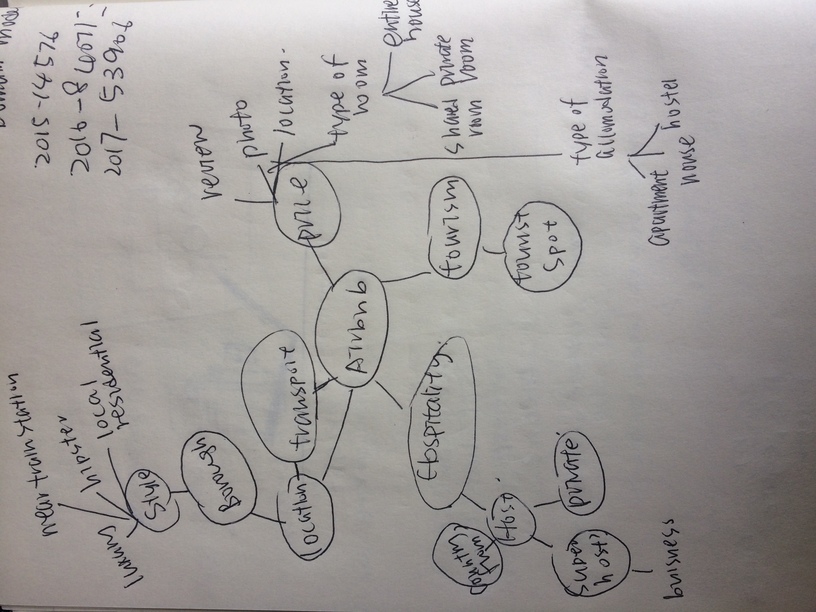 near train station
Domain Model
2015-14576
hipster
luxury
local
residential
2017-53906
Style
Borough
review
photo
location
transport
location.
price
type of
room
Airbnb
entire
house
Hospitality.
tourism
shared
room
private
room
country
from
Host
tourist
spot
super
host?
private
type of
allomodation
buisness
apartment
house
hostel